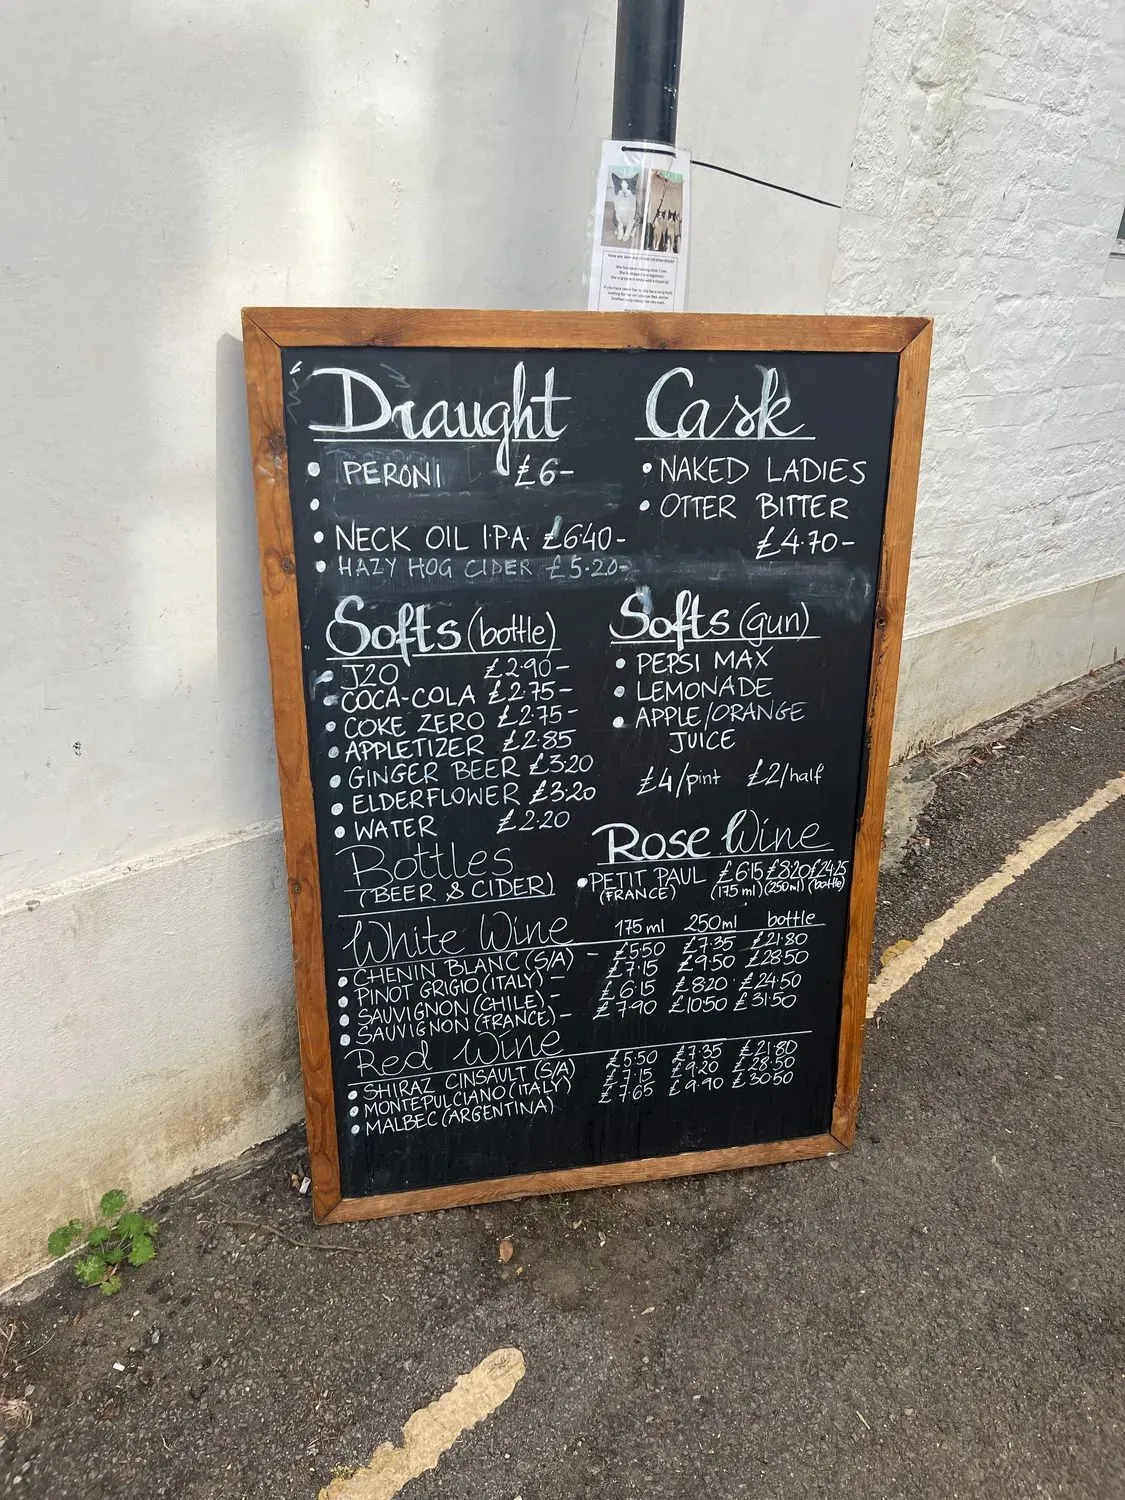 Draught
PERONI £6-
NECK OIL I.P.A. £6.40-
HAZY HOG CIDER £5.20-
Cask
NAKED LADIES
OTTER BITTER
£4.70-
Softs (bottle)
J2O £2.90-
COCA-COLA £2.75-
COKE ZERO £2.75-
APPLETIZER £2.85
GINGER BEER £3.20
ELDERFLOWER £3.20
WATER £2.20
Softs (gun)
PEPSI MAX
LEMONADE
APPLE/ORANGE
JUICE
£4/pint £2/half
Bottles
(BEER & CIDER)
Rose Wine
PETIT PAUL £6.15 £8.20 £24.25
(FRANCE) (175 ml) (250ml) (bottle)
White Wine 175 ml 250ml bottle
CHENIN BLANC (S/A) - £5.50 £7.35 £21.80
PINOT GRIGIO (ITALY) - £7.15 £9.50 £28.50
SAUVIGNON (CHILE) - £6.15 £8.20 £24.50
SAUVIGNON (FRANCE) - £7.90 £10.50 £31.50
Red Wine
SHIRAZ CINSAULT (S/A) £5.50 £7.35 £21.80
MONTEPULCIANO (ITALY) £7.15 £9.20 £28.50
MALBEC (ARGENTINA) £7.65 £9.90 £30.50